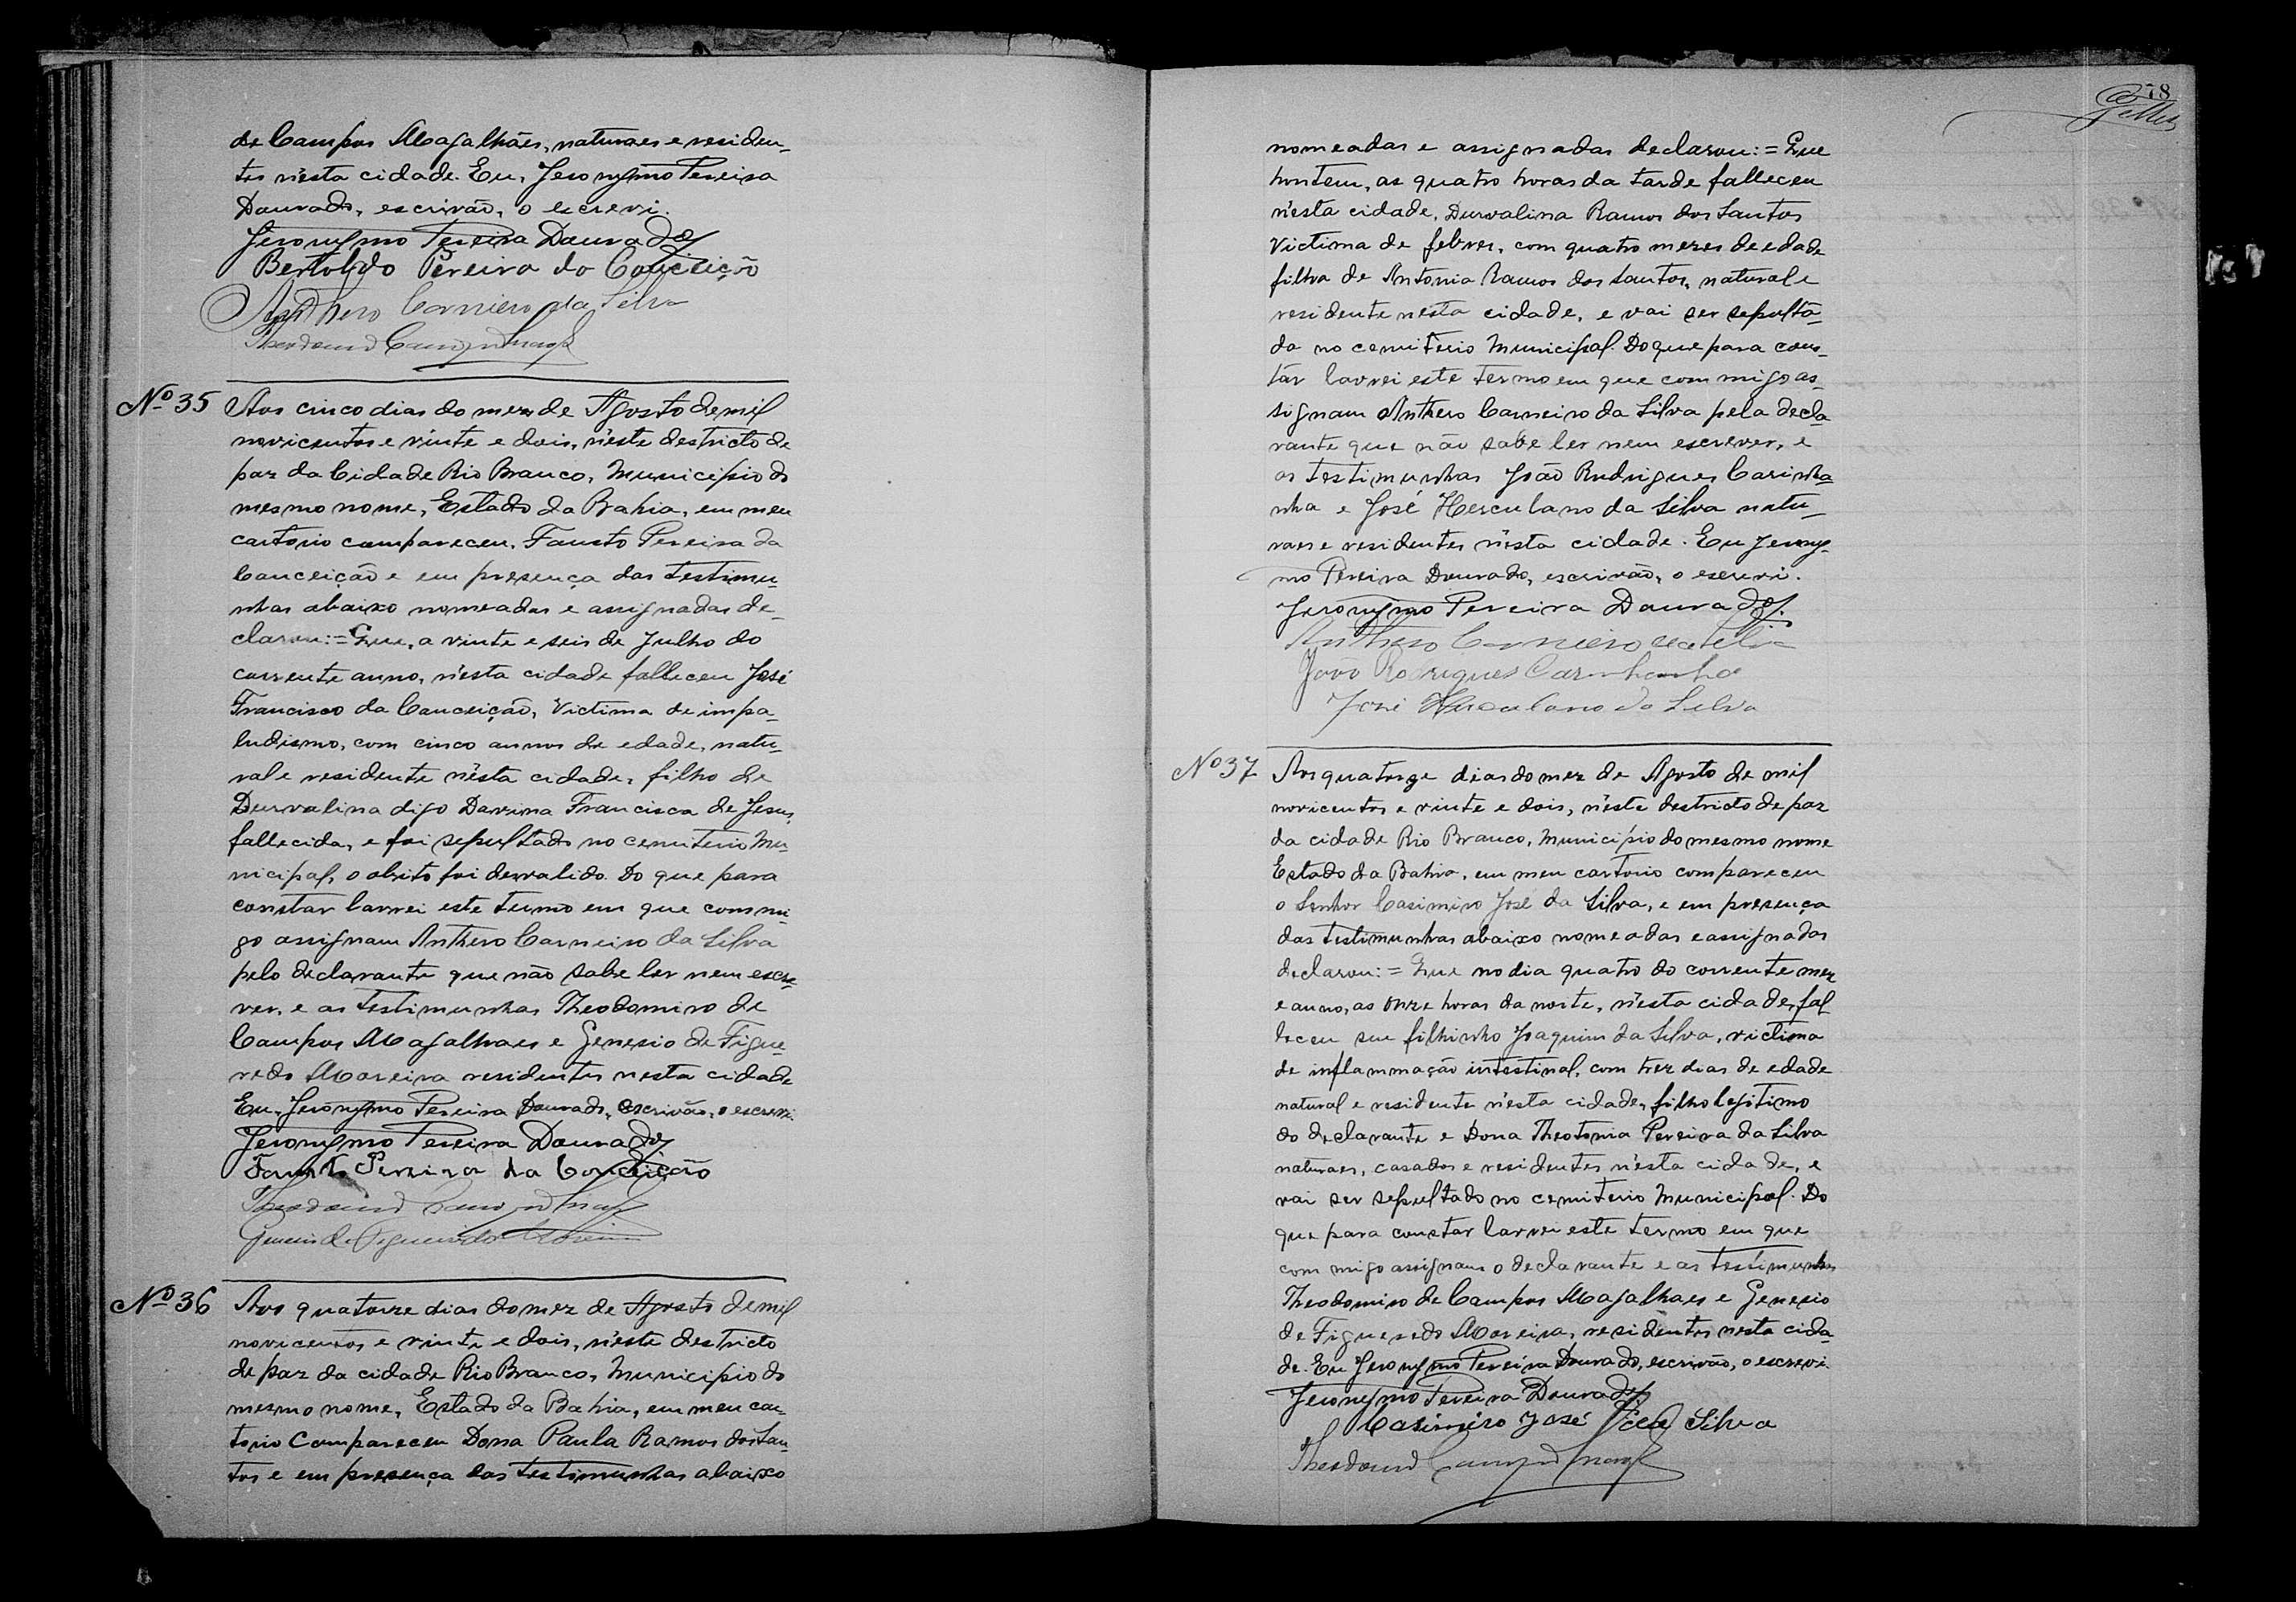 de Campos Magalhães, naturaes e residen-
tes n'esta cidade. Eu, Jeronymo Pereira
Dourado, escrivão, o escrevi.
Jeronymo Pereira Dourado
Bertoldo Pereira da Conceição
Anthero Carneiro da Silva
Nº 35 Aos cinco dias do mez de Agosto de mil
novicentos e vinte e dois, n'este destricto de
paz da Cidade Rio Branco, Municipio do
mesmo nome, Estado da Bahia, em meu
cartorio compareceu, Fausto Pereira da
Conceição e em presença das testimu-
nhas abaixo nomeadas e assignadas de-
clarou:= Que, a vinte e seis de Julho do
corrente anno, n'esta cidade falleceu José
Francisco da Conceição, Victima de impa-
ludismo, com cinco annos de edade, natu-
ral e residente n'esta cidade, filho de
Durvalina digo Davina Francisca de Jesus,
fallecida, e foi sepultado no cemiterio Mu-
nicipal, o obito foi desvalido. Do que para
constar lavrei este termo em que commi-
go assignam Anthero Carneiro da Silva
pelo declarante que não sabe ler nem escre-
ver, e as testimunhas Theodomiro de
Campos Magalhaes e Genesio de Figue-
redo Moreira residentes nesta cidade
Eu, Jeronymo Pereira Dourado, escrivão, o escrevi.
Jeronymo Pereira Dourado
Fausto Pereira da Conceição
Genesio de Figueiredo Moreira
Nº 36 Aos quatorze dias do mez de Agosto de mil
novicentos e vinte e dois, n'este destricto
de paz da cidade Rio Branco, Municipio do
mesmo nome, Estado da Bahia, em meu car-
torio Compareceu Dona Paula Ramos dos San-
tos e em presença das testimunhas abaixo
78
nomeadas e assignadas declarou:= Que
hontem, as quatro horas da tarde falleceu
n'esta cidade, Durvalina Ramos dos Santos
Victima de febres, com quatro mezes de edade
filha de Antonia Ramos dos Santos, natural e
residente nesta cidade, e vai ser sepulta-
da no cemiterio Municipal. Do que para cons-
tar lavrei este termo em que commigo as-
signam Anthero Carneiro da Silva pela decla-
rante que não sabe ler nem escrever, e
as testimunhas João Rudrigues Carinha-
nha e José Herculano da Silva natu-
raes e residentes n'esta cidade. Eu Jerony-
mo Pereira Dourado, escrivão, o escrevi.
Jeronymo Pereira Dourado.
Anthero Carneiro da Silva
João Rodrigues Carinhanha
José Herculano da Silva
Nº 37 Aos quatorze dias do mez de Agosto de mil
novicentos e vinte e dois, n'este destricto de paz
da cidade Rio Branco, Municipio do mesmo nome
Estado da Bahia, em meu cartorio compareceu
o Senhor Casimiro José da Silva, e em presença
das testimunhas abaixo nomeadas e assignadas
declarou:= Que no dia quatro do corrente mez
e anno, as onze horas da noite, n'esta cidade, fal
leceu seu filhinho Joaquim da Silva, victima
de inflammação intestinal, com trez dias de edade
natural e residente n'esta cidade, filho legitimo
do declarante e Dona Theotonia Pereira da Silva
naturaes, casados e residentes n'esta cidade, e
vai ser sepultado no cemiterio Municipal. Do
que para constar lavrei este termo em que
com migo assignam o declarante e as testimunhas
Theodomiro de Campos Magalhaes e Genesio
de Figueredo Moreira, residentes nesta cida-
de. Eu Jeronymo Pereira Dourado, escrivão, o escrevi.
Jeronymo Pereira Dourado
Casimiro José da Silva